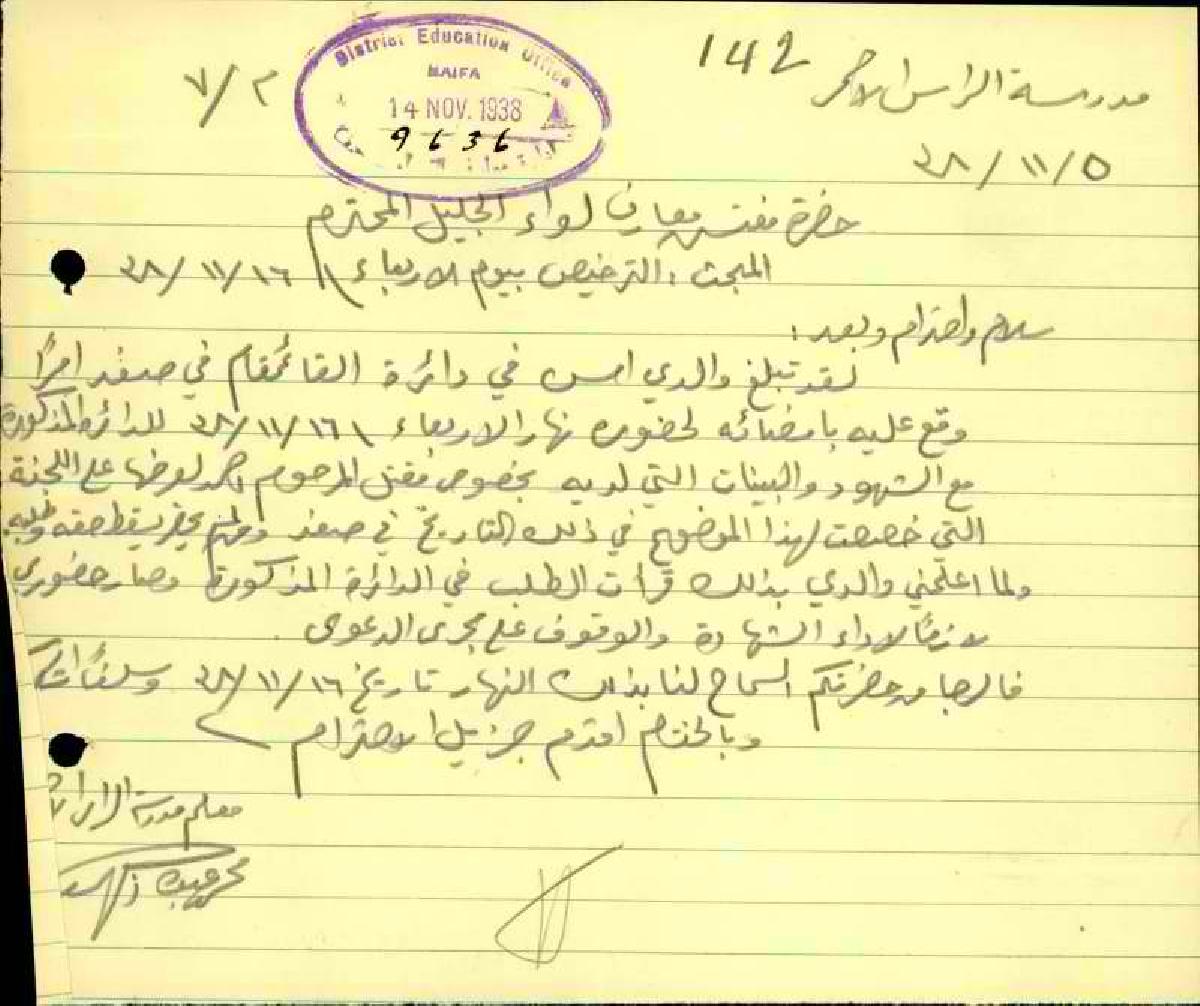 142
مدرسة الراس الاحمر
٣٨/١١/٥
٢/٧
District Education Office
HAIFA
14 NOV. 1938
9636
حضرة مفتش معارف لواء الجليل المحترم
المبحث : الترخيص بيوم الاربعاء ٣٨/١١/١٦
سلام واحترام وبعد :
لقد تبلغ والدي امس في دائرة القائمقام في صفد امرًا
وقع عليه بامضائه لحضوره نهار الاربعاء ٣٨/١١/١٦ للدائرة المذكورة
مع الشهود والبينات التي لديه بخصوص مقتل المرحوم لعرضها على اللجنة
التي خصصت لهذا الموضوع في ذلك التاريخ في صفد يسقط حقه وطلبه
ولما اعلمني والدي بذلك قرأت الطلب في الدائرة المذكورة وصار حضوري
لازمًا لاداء الشهادة والوقوف على مجرى الدعوى
فالرجا من حضرتكم السماح لنا بذلك النهار تاريخ ٣٨/١١/١٦ وسلفًا
وبالختام اقدم جزيل الاحترام
معلم مدرسة الراس